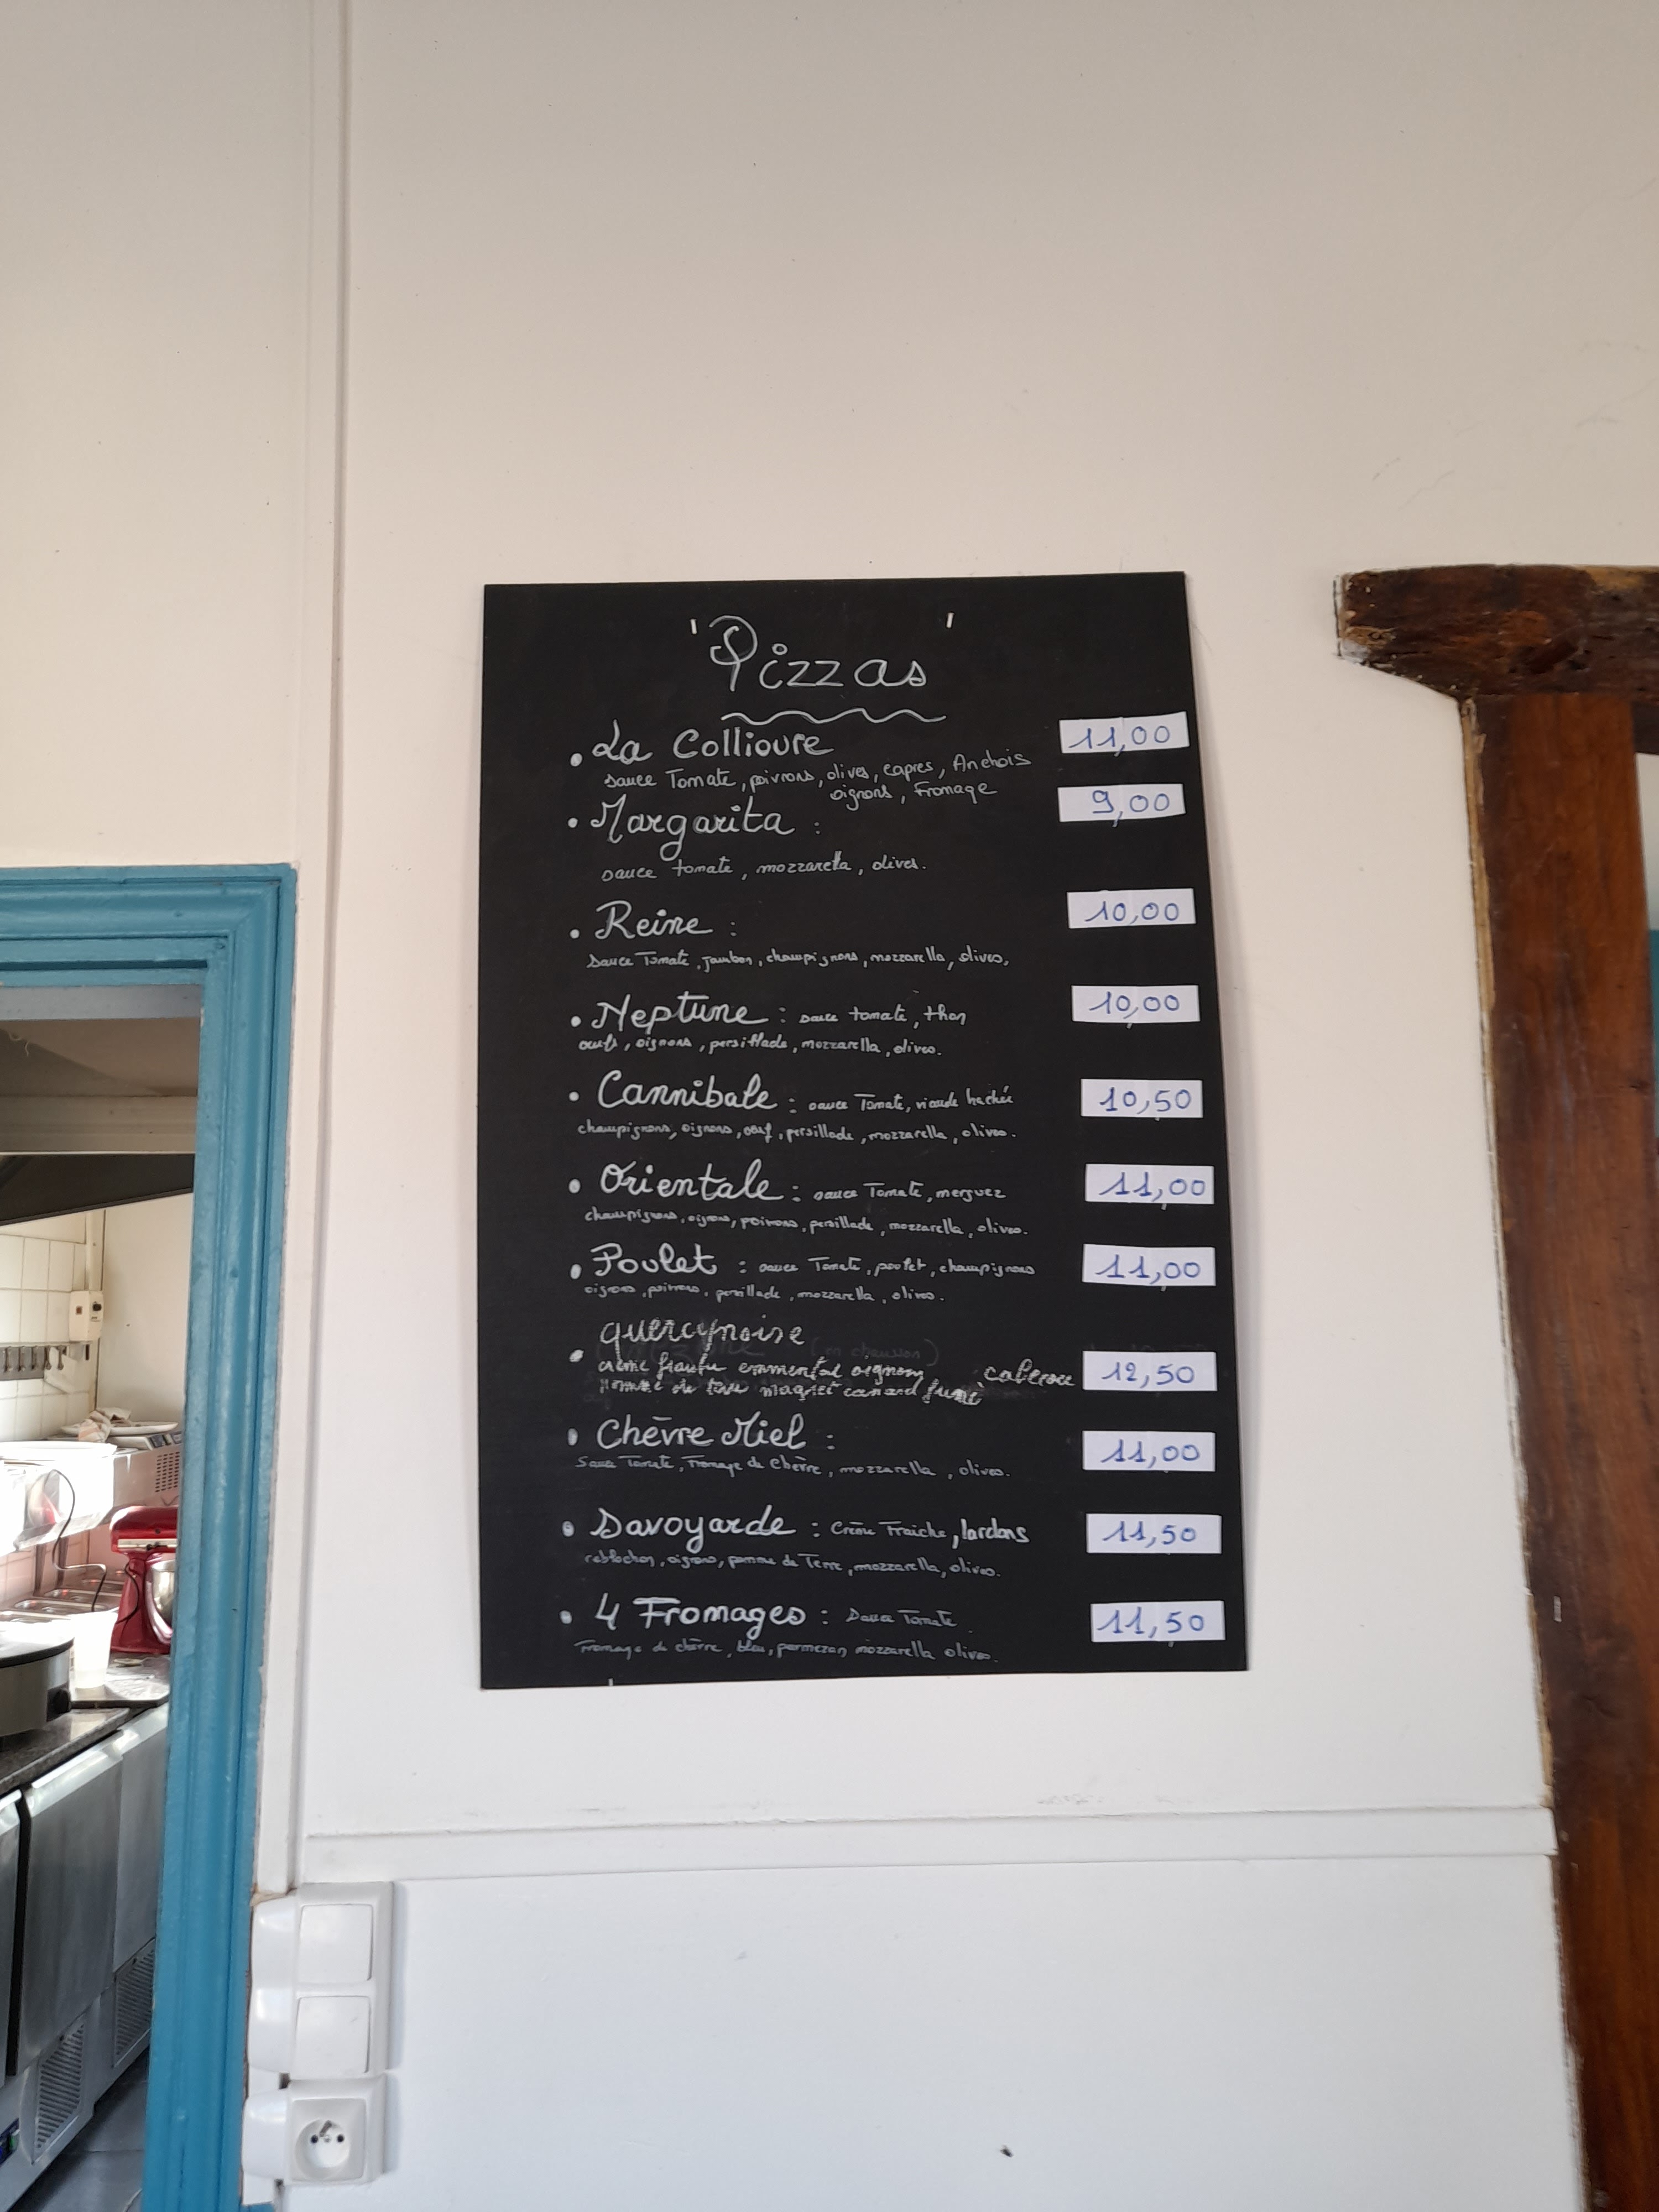 'Pizzas'
• La Collioure 11,00
sauce Tomate, poivrons, olives, capres, Anchois
oignons, Fromage
• Margarita : 9,00
sauce tomate, mozzarella, olives.
• Reine : 10,00
Sauce Tomate, jambon, champignons, mozzarella, olives,
• Neptune : sauce tomate, thon 10,00
oeufs, oignons, persillade, mozzarella, olives.
• Cannibale : sauce Tomate, viande hachée 10,50
champignons, oignons, oeuf, persillade, mozzarella, olives.
• Orientale : sauce Tomate, merguez 11,00
champignons, oignons, poivrons, persillade, mozzarella, olives.
• Poulet : sauce Tomate, poulet, champignons 11,00
oignons, poivrons, persillade, mozzarella, olives.
• quercynoise
(en chausson)
crème fraiche emmental oignons cabecou 12,50
pomme de terre magret canard fumé
• Chèvre Miel : 11,00
Sauce Tomate, Fromage de Chèvre, mozzarella, olives.
• Savoyarde : Crème Fraiche, lardons 11,50
reblochon, oignons, pomme de Terre, mozzarella, olives.
• 4 Fromages : Sauce Tomate 11,50
Fromage de chèvre, bleu, parmezan mozzarella olives.